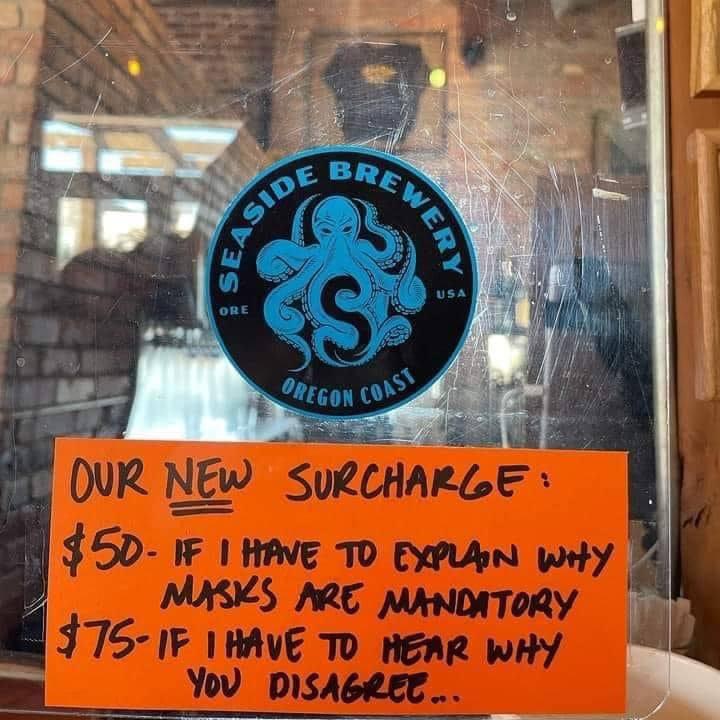 SEASIDE BREWERY
ORE
USA
OREGON COAST
OUR NEW SURCHARGE:
$50- IF I HAVE TO EXPLAIN WHY
MASKS ARE MANDATORY
$75- IF I HAVE TO HEAR WHY
YOU DISAGREE...